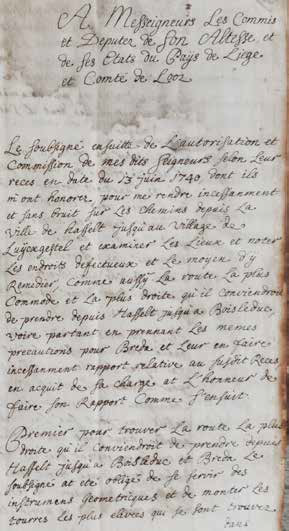 A Messeigneurs Les Commis
et Deputez de Son Altesse et
de ses Etats du Pays de Liege
et Comté de Looz
Le soubsigné ensuitte de L'autorisation et
Commission de mes dits Seigneurs selon Leur
reces en date du 13 juin 1740 dont ils
m'ont honorez pour me rendre incessamment
et sans bruit sur Les chemins depuis La
Ville de Hasselt jusqu'au village de
Luijcxgestel et examiner Les Lieux et noter
Les endroits defectueux et Le moyen d'y
Remedier, Comme aussy La route La plus
Commode et La plus droite qu'il Conviendroit
de prendre depuis Hasselt jusqu'a Boisleduc,
voire partant en prennant Les memes
precautions pour Breda et Leur en faire
incessamment rapport relative au susdit Reces
en acquit de sa charge at L'honneur de
faire son Rapport Comme s'ensuit.
Premier pour trouver La route La plus
droite qu'il Conviendroit de prendre depuis
Hasselt jusqu'a Boisleduc et Breda Le
soubsigné at eté obligé de se servir des
instrumens Geometriques et de monter Les
tourres Les plus elevées qui se sont trouvez
dans